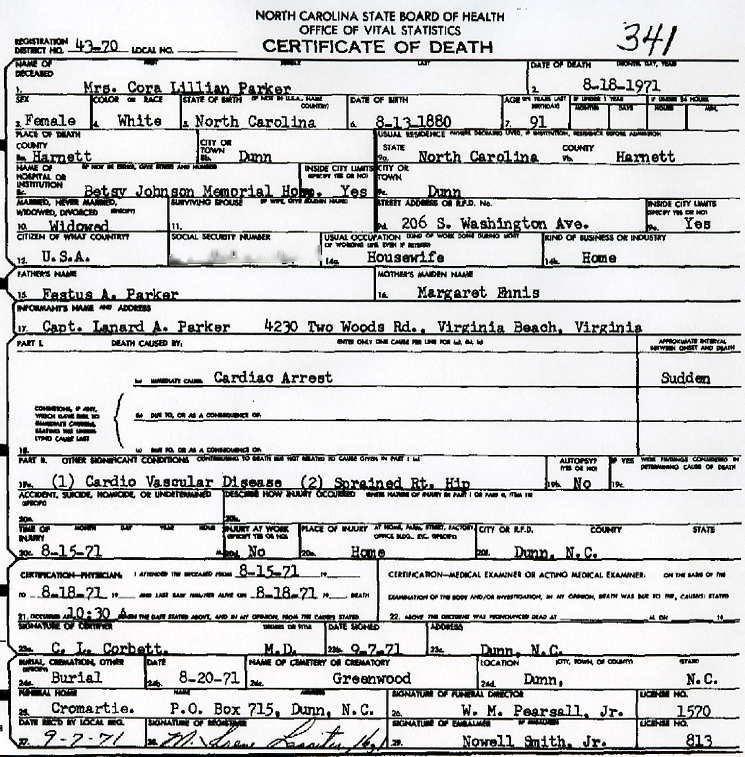 NORTH CAROLINA STATE BOARD OF HEALTH
OFFICE OF VITAL STATISTICS
CERTIFICATE OF DEATH
341
REGISTRATION DISTRICT NO. 43-70 LOCAL NO.
NAME OF DECEASED FIRST MIDDLE LAST DATE OF DEATH (MONTH, DAY, YEAR)
1. Mrs. Cora Lillian Parker 2. 8-18-1971
SEX COLOR OR RACE STATE OF BIRTH (IF NOT IN U.S.A., NAME COUNTRY) DATE OF BIRTH AGE (IN YEARS LAST BIRTHDAY) IF UNDER 1 YEAR IF UNDER 24 HOURS
MONTHS DAYS HOURS MIN.
3. Female 4. White 5. North Carolina 6. 8-13-1880 7. 91
PLACE OF DEATH USUAL RESIDENCE (WHERE DECEASED LIVED, IF INSTITUTION, RESIDENCE BEFORE ADMISSION)
COUNTY CITY OR TOWN STATE COUNTY
8a. Harnett 8b. Dunn 9a. North Carolina 9b. Harnett
NAME OF HOSPITAL OR INSTITUTION (IF NOT IN EITHER, GIVE STREET AND NUMBER) INSIDE CITY LIMITS (SPECIFY YES OR NO) CITY OR TOWN
8c. Betsy Johnson Memorial Hosp. Yes 9c. Dunn
MARRIED, NEVER MARRIED, WIDOWED, DIVORCED (SPECIFY) SURVIVING SPOUSE (IF WIFE, GIVE MAIDEN NAME) STREET ADDRESS OR R.F.D. No. INSIDE CITY LIMITS (SPECIFY YES OR NO)
10. Widowed 11. 9d. 206 S. Washington Ave. 9e. Yes
CITIZEN OF WHAT COUNTRY? SOCIAL SECURITY NUMBER USUAL OCCUPATION (KIND OF WORK DONE DURING MOST OF WORKING LIFE EVEN IF RETIRED) KIND OF BUSINESS OR INDUSTRY
12. U.S.A. 14a. Housewife 14b. Home
FATHER'S NAME MOTHER'S MAIDEN NAME
15. Festus A. Parker 16. Margaret Ennis
INFORMANT'S NAME AND ADDRESS
17. Capt. Lanard A. Parker 4230 Two Woods Rd., Virginia Beach, Virginia
PART I. DEATH CAUSED BY: ENTER ONLY ONE CAUSE PER LINE FOR (a), (b), (c) APPROXIMATE INTERVAL BETWEEN ONSET AND DEATH
(a) IMMEDIATE CAUSE Cardiac Arrest Sudden
CONDITIONS, IF ANY, WHICH GAVE RISE TO IMMEDIATE CAUSE (a), STATING THE UNDERLYING CAUSE LAST
(b) DUE TO, OR AS A CONSEQUENCE OF:
(c) DUE TO, OR AS A CONSEQUENCE OF:
18.
PART II. OTHER SIGNIFICANT CONDITIONS CONTRIBUTING TO DEATH BUT NOT RELATED TO CAUSE GIVEN IN PART I (a) AUTOPSY? (YES OR NO) IF YES WERE FINDINGS CONSIDERED IN DETERMINING CAUSE OF DEATH
19a. (1) Cardio Vascular Disease (2) Sprained Rt. Hip 19b. No 19c.
ACCIDENT, SUICIDE, HOMICIDE, OR UNDETERMINED (SPECIFY) DESCRIBE HOW INJURY OCCURRED (ENTER NATURE OF INJURY IN PART I OR PART II, ITEM 18)
20a. 20b.
TIME OF INJURY MONTH DAY YEAR HOUR INJURY AT WORK (SPECIFY YES OR NO) PLACE OF INJURY AT HOME, FARM, STREET, FACTORY, OFFICE BLDG., ETC. (SPECIFY) CITY OR R.F.D. COUNTY STATE
20c. 8-15-71 M. 20d. No 20e. Home 20f. Dunn, N.C.
CERTIFICATION—PHYSICIAN: I ATTENDED THE DECEASED FROM 8-15-71 19 CERTIFICATION—MEDICAL EXAMINER OR ACTING MEDICAL EXAMINER: ON THE BASIS OF THE
TO 8-18-71 19 AND LAST SAW HIM/HER ALIVE ON 8-18-71 19 DEATH EXAMINATION OF THE BODY AND/OR INVESTIGATION, IN MY OPINION, DEATH WAS DUE TO THE CAUSE(S) STATED
21. OCCURRED AT 10:30 A M ON THE DATE STATED ABOVE, AND IN MY OPINION, FROM THE CAUSES STATED 22. ABOVE. THE DECEDENT WAS PRONOUNCED DEAD AT M. ON 19
SIGNATURE OF CERTIFIER DEGREE OR TITLE DATE SIGNED ADDRESS
23a. C. L. Corbett. M.D. 23b. 9-7-71 23c. Dunn, N.C.
BURIAL, CREMATION, OTHER (SPECIFY) DATE NAME OF CEMETERY OR CREMATORY LOCATION (CITY, TOWN, OR COUNTY) STATE
24a. Burial 24b. 8-20-71 24c. Greenwood 24d. Dunn, N.C.
FUNERAL HOME NAME ADDRESS SIGNATURE OF FUNERAL DIRECTOR LICENSE NO.
25. Cromartie. P.O. Box 715, Dunn, N.C. 26. W. M. Pearsall, Jr. 1570
DATE REC'D BY LOCAL REG. SIGNATURE OF REGISTRAR SIGNATURE OF EMBALMER IF EMBALMED LICENSE NO.
27. 9-7-71 28. 29. Nowell Smith, Jr. 813